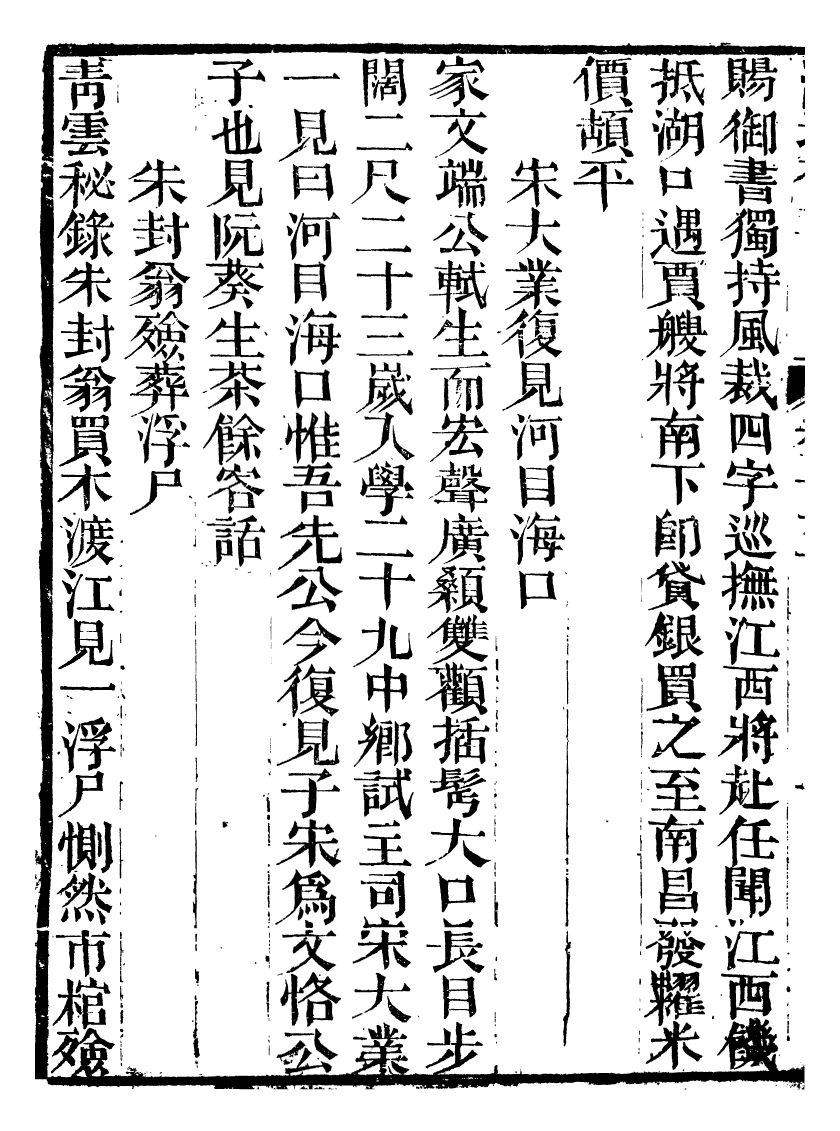 賜御書獨持風裁四字巡撫江西將赴任聞江西饑
抵湖口遇賈艘將南下卽貸銀買之至南昌發糶米
價頓平
宋大業復見河目海口
家文端公軾生而宏聲廣顙雙顴插髩大口長目步
闊二尺二十三歲入學二十九中鄉試主司宋大業
一見曰河目海口惟吾先公今復見子宋爲文恪公
子也見阮葵生茶餘客話
朱封翁殮葬浮尸
靑雲秘錄朱封翁買木渡江見一浮尸惻然市棺殮